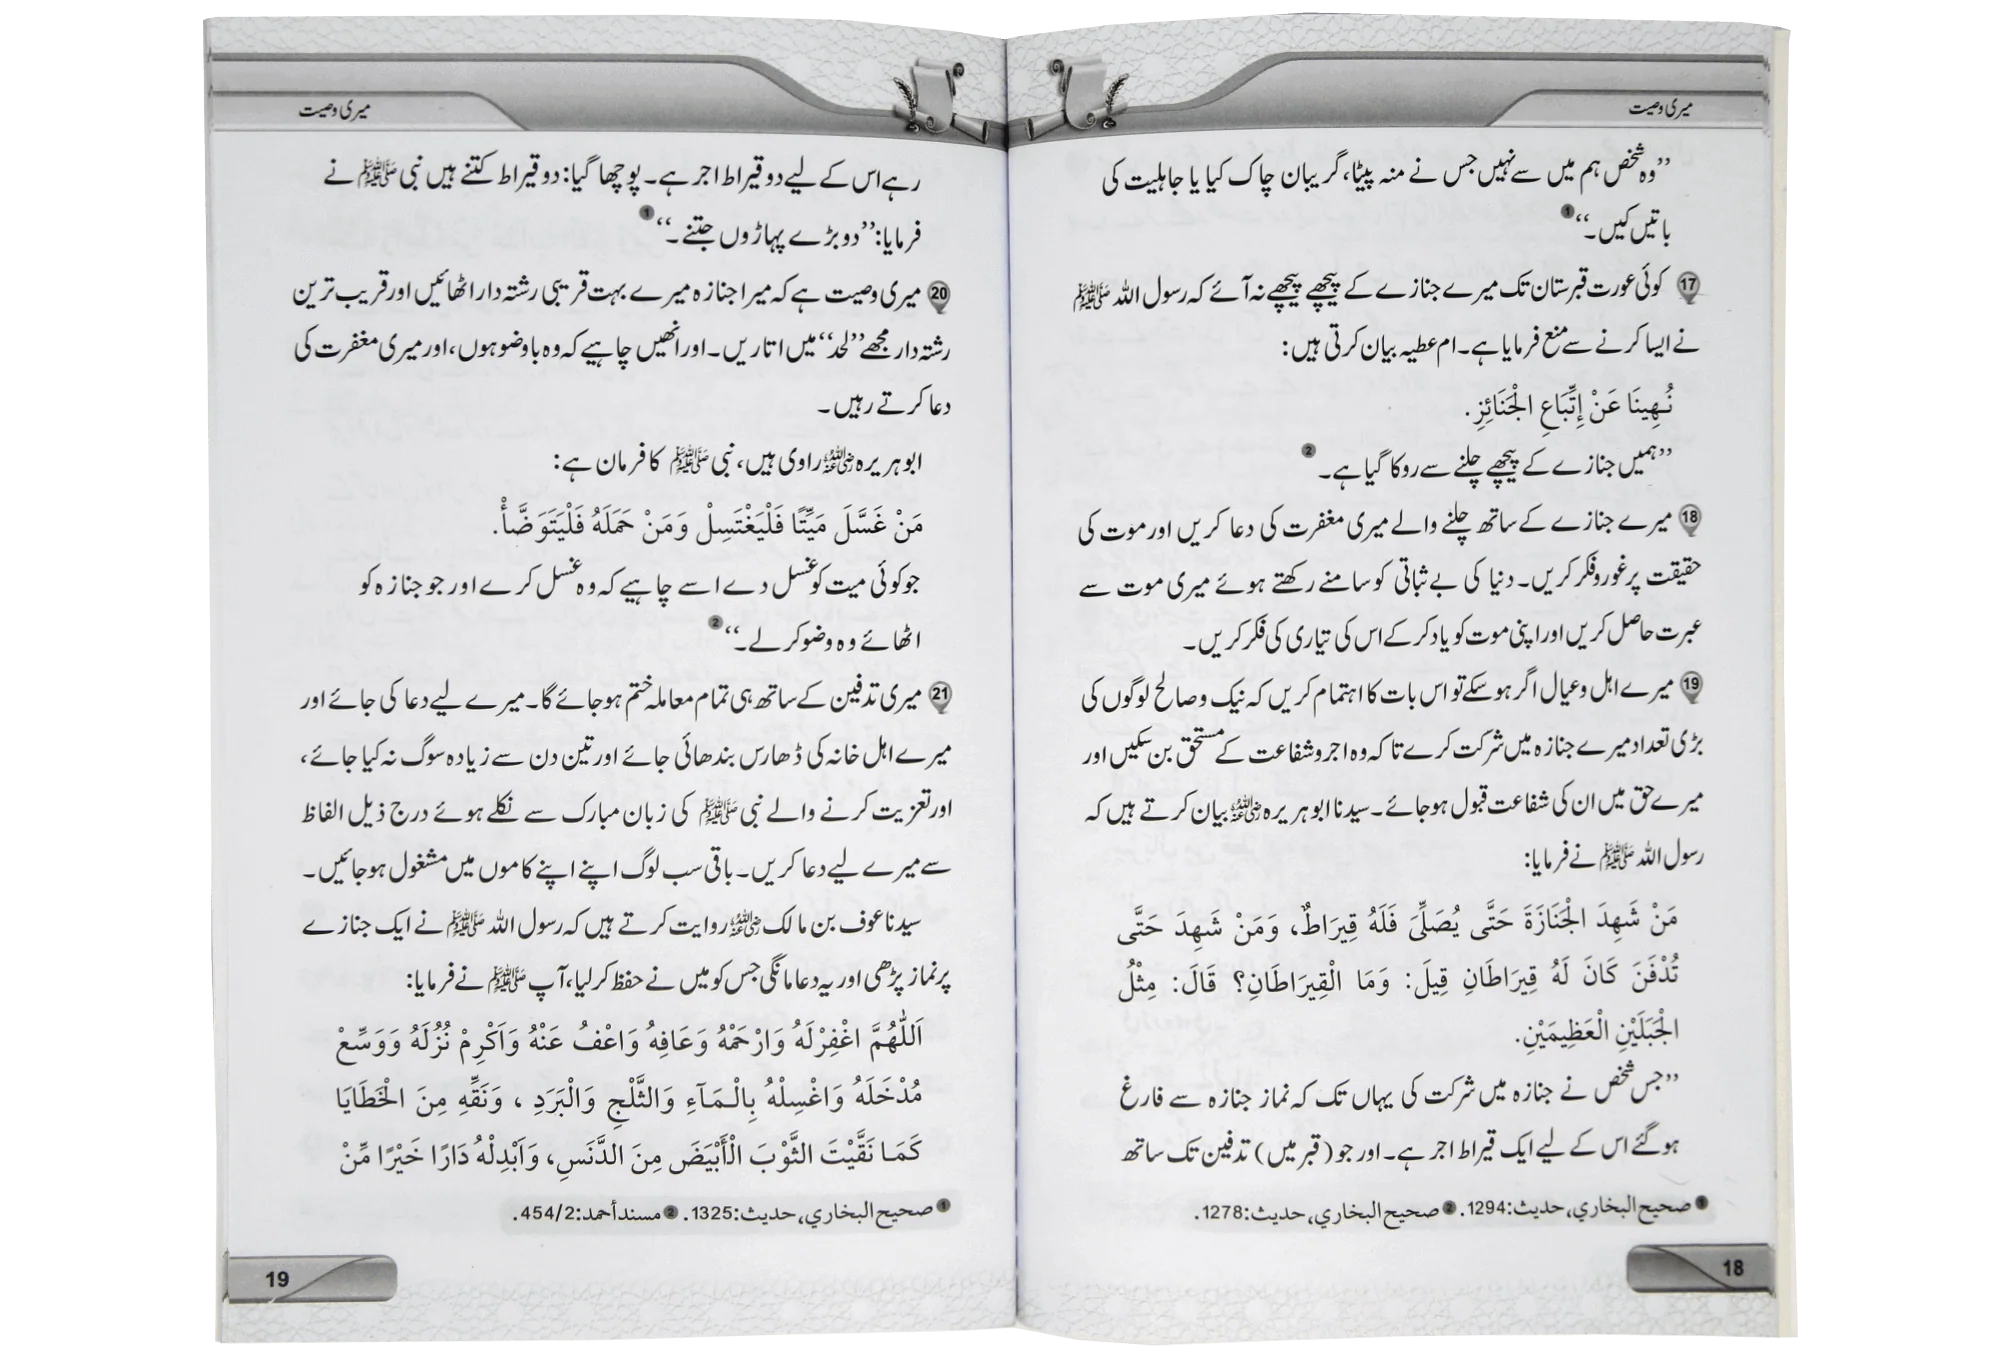 میری وصیت
’’وہ شخص ہم میں سے نہیں جس نے منہ پیٹا، گریبان چاک کیا یا جاہلیت کی
باتیں کیں۔‘‘ 1
17 کوئی عورت قبرستان تک میرے جنازے کے پیچھے پیچھے نہ آئے کہ رسول اللہ ﷺ
نے ایسا کرنے سے منع فرمایا ہے۔ ام عطیہ بیان کرتی ہیں:
نُهِينَا عَنْ إِتِّبَاعِ الْجَنَائِزِ.
’’ہمیں جنازے کے پیچھے چلنے سے روکا گیا ہے۔ 2
18 میرے جنازے کے ساتھ چلنے والے میری مغفرت کی دعا کریں اور موت کی
حقیقت پر غور و فکر کریں۔ دنیا کی بے ثباتی کو سامنے رکھتے ہوئے میری موت سے
عبرت حاصل کریں اور اپنی موت کو یاد کر کے اس کی تیاری کی فکر کریں۔
19 میرے اہل و عیال اگر ہو سکے تو اس بات کا اہتمام کریں کہ نیک و صالح لوگوں کی
بڑی تعداد میرے جنازہ میں شرکت کرے تاکہ وہ اجر و شفاعت کے مستحق بن سکیں اور
میرے حق میں ان کی شفاعت قبول ہو جائے۔ سیدنا ابو ہریرہ رضی اللہ عنہ بیان کرتے ہیں کہ
رسول اللہ ﷺ نے فرمایا:
مَنْ شَهِدَ الْجَنَازَةَ حَتَّى يُصَلِّيَ فَلَهُ قِيرَاطٌ، وَمَنْ شَهِدَ حَتَّى
تُدْفَنَ كَانَ لَهُ قِيرَاطَانِ قِيلَ: وَمَا الْقِيرَاطَانِ؟ قَالَ: مِثْلُ
الْجَبَلَيْنِ الْعَظِيمَيْنِ.
’’جس شخص نے جنازہ میں شرکت کی یہاں تک کہ نماز جنازہ سے فارغ
ہو گئے اس کے لیے ایک قیراط اجر ہے۔ اور جو (قبر میں) تدفین تک ساتھ
1 صحيح البخاري، حديث:1294. 2 صحيح البخاري، حديث:1278.
18
میری وصیت
رہے اس کے لیے دو قیراط اجر ہے۔ پوچھا گیا: دو قیراط کتنے ہیں نبی ﷺ نے
فرمایا: ’’دو بڑے پہاڑوں جتنے۔‘‘ 1
20 میری وصیت ہے کہ میرا جنازہ میرے بہت قریبی رشتہ دار اٹھائیں اور قریب ترین
رشتہ دار مجھے ’’لحد‘‘ میں اتاریں۔ اور انھیں چاہیے کہ وہ باوضو ہوں، اور میری مغفرت کی
دعا کرتے رہیں۔
ابو ہریرہ رضی اللہ عنہ راوی ہیں، نبی ﷺ کا فرمان ہے:
مَنْ غَسَّلَ مَيِّتًا فَلْيَغْتَسِلْ وَمَنْ حَمَلَهُ فَلْيَتَوَضَّأْ.
جو کوئی میت کو غسل دے اسے چاہیے کہ وہ غسل کرے اور جو جنازہ کو
اٹھائے وہ وضو کر لے۔‘‘ 2
21 میری تدفین کے ساتھ ہی تمام معاملہ ختم ہو جائے گا۔ میرے لیے دعا کی جائے اور
میرے اہل خانہ کی ڈھارس بندھائی جائے اور تین دن سے زیادہ سوگ نہ کیا جائے،
اور تعزیت کرنے والے نبی ﷺ کی زبان مبارک سے نکلے ہوئے درج ذیل الفاظ
سے میرے لیے دعا کریں۔ باقی سب لوگ اپنے اپنے کاموں میں مشغول ہو جائیں۔
سیدنا عوف بن مالک رضی اللہ عنہ روایت کرتے ہیں کہ رسول اللہ ﷺ نے ایک جنازے
پر نماز پڑھی اور یہ دعا مانگی جس کو میں نے حفظ کر لیا، آپ ﷺ نے فرمایا:
اَللّٰهُمَّ اغْفِرْلَهُ وَارْحَمْهُ وَعَافِهِ وَاعْفُ عَنْهُ وَاَكْرِمْ نُزُلَهُ وَوَسِّعْ
مُدْخَلَهُ وَاغْسِلْهُ بِالْمَآءِ وَالثَّلْجِ وَالْبَرَدِ ، وَنَقِّهِ مِنَ الْخَطَايَا
كَمَا نَقَّيْتَ الثَّوْبَ الْأَبْيَضَ مِنَ الدَّنَسِ، وَاَبْدِلْهُ دَارًا خَيْرًا مِّنْ
1 صحيح البخاري، حديث:1325. 2 مسند أحمد:454/2.
19